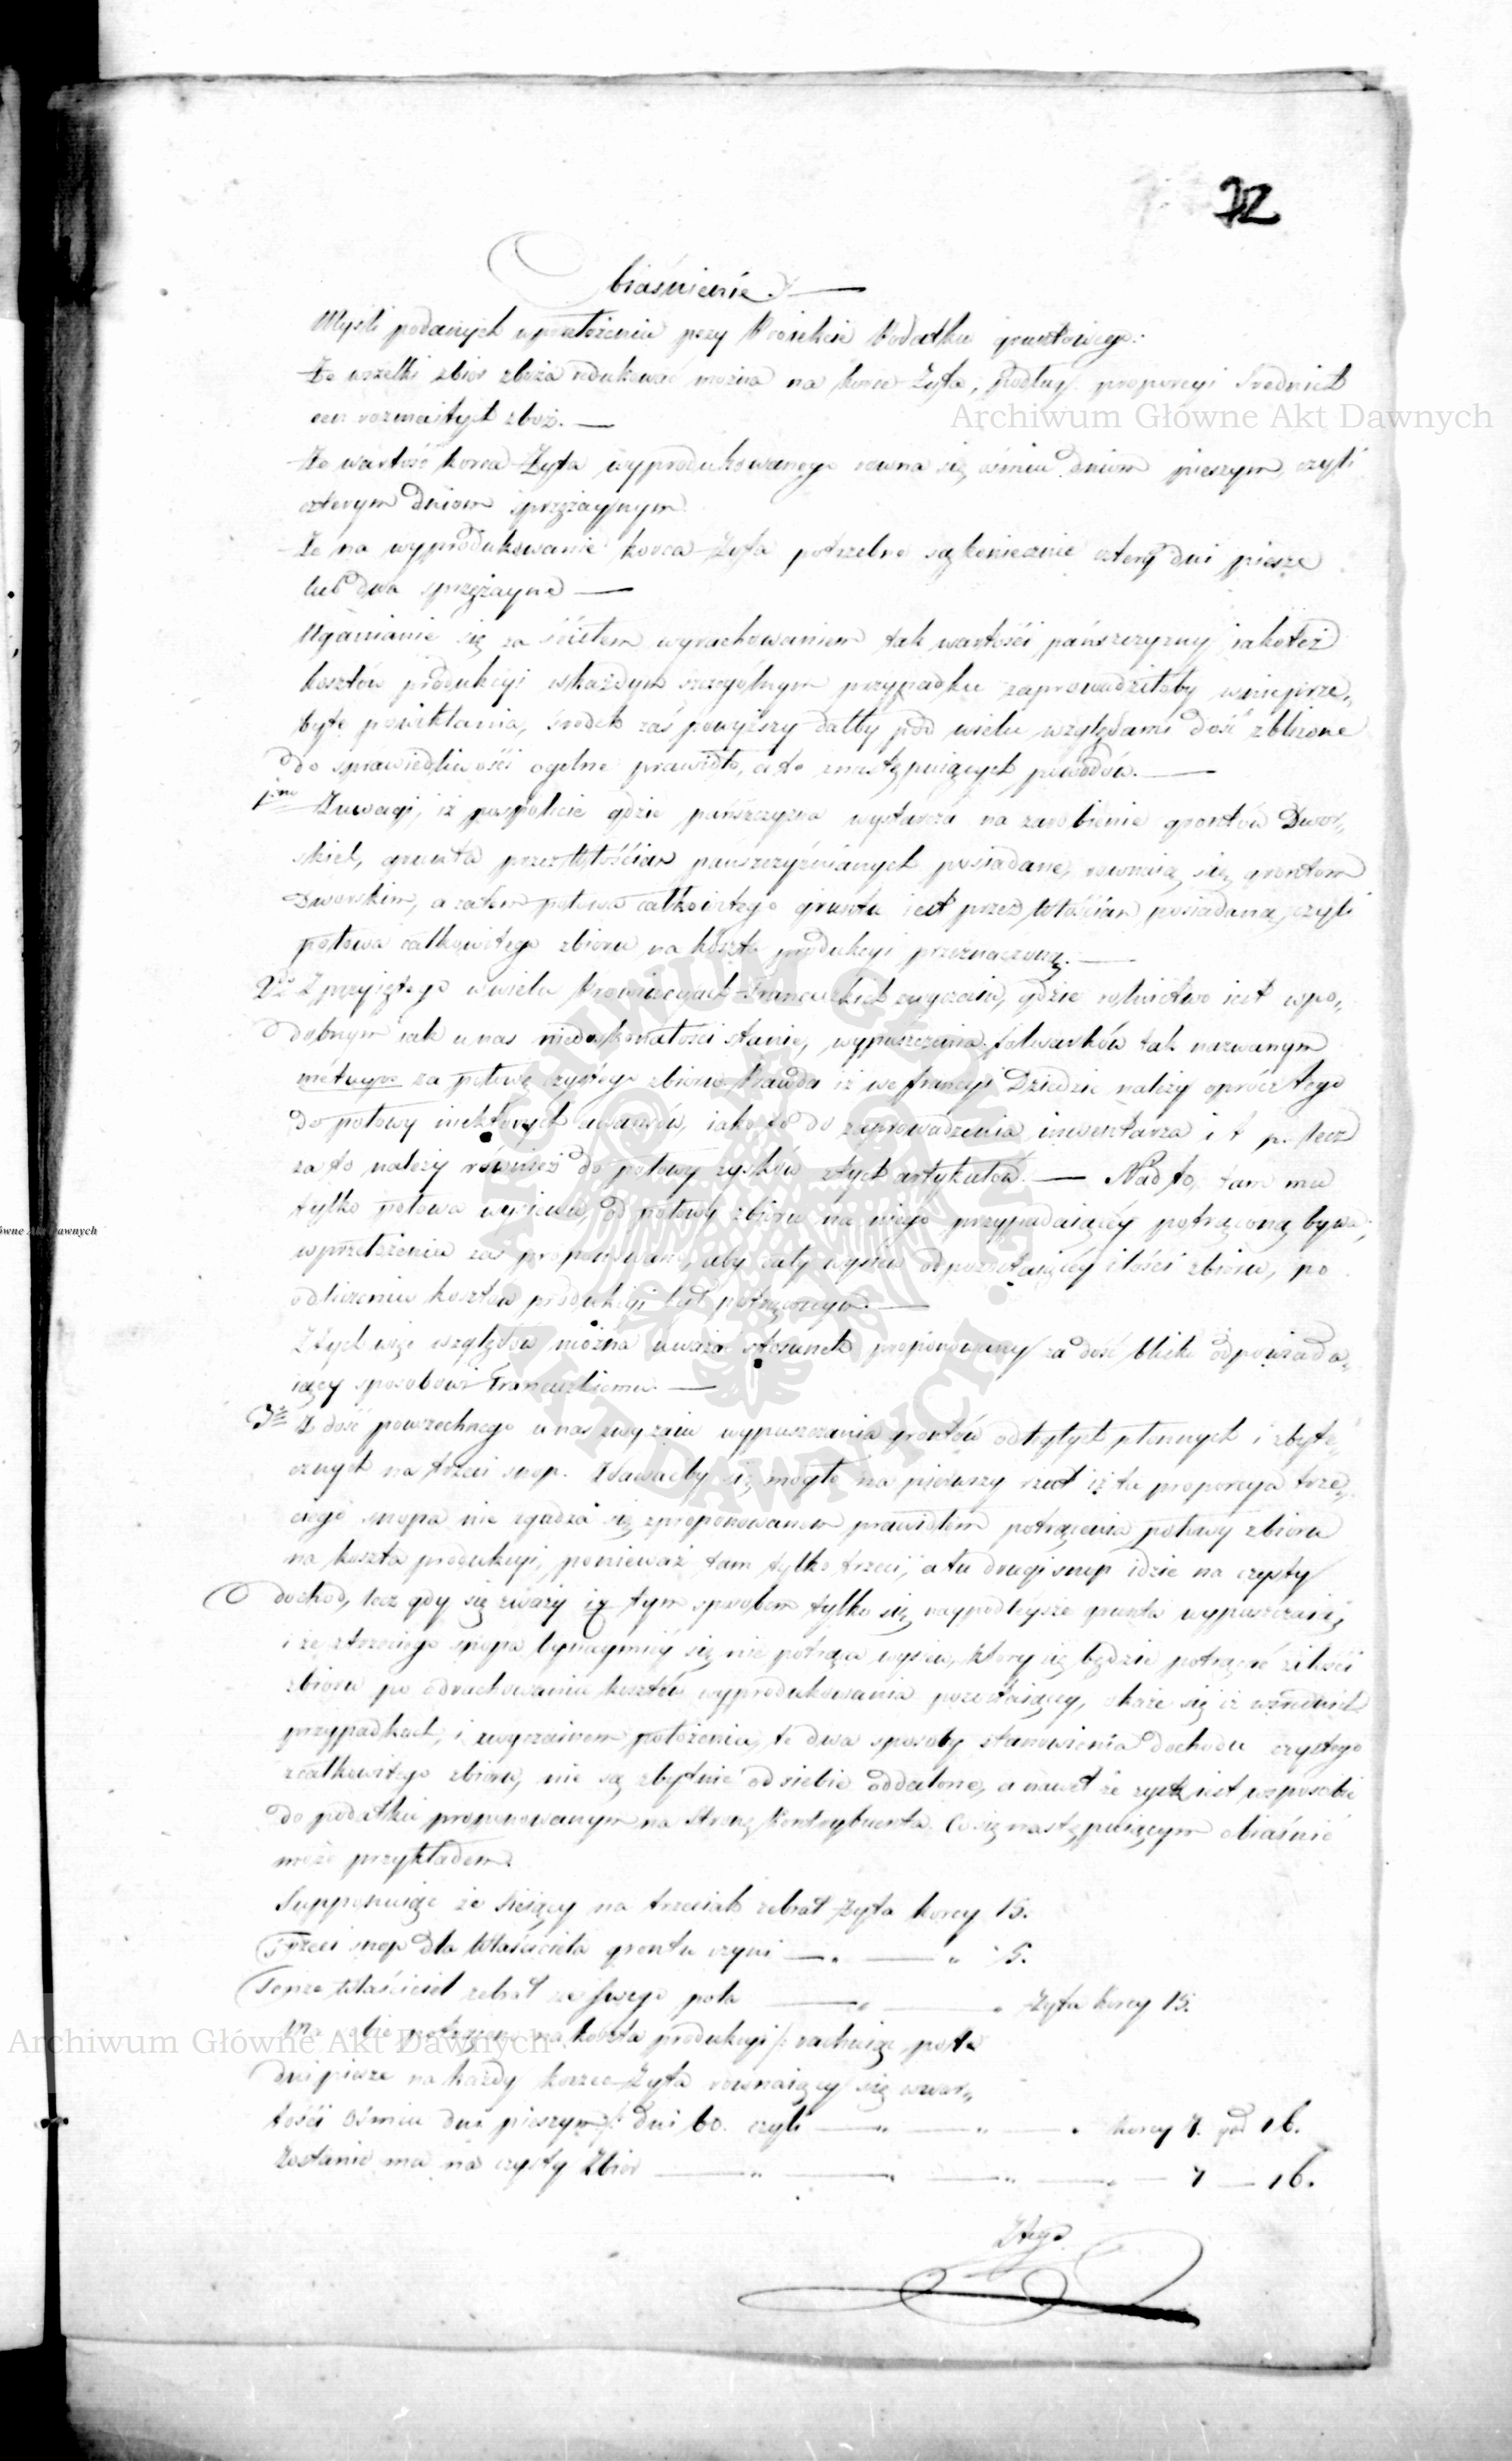 32
Obiaśnienie.
Myśli podanych w przełożeniu przy Proiekcie Podatku gruntowego:
Że wszelki zbiór zboża redukować można na korce Żyta, podług proporcyi średnich
cen rozmaitych zbóż. —
Że wartość korca Żyta wyprodukowanego rowna się ośmiu dniom pieszym, czyli
czterym dniom sprzężaynym
Że na wyprodukowanie korca Żyta potrzebne są koniecznie cztery dni piesze
lub dwa sprzężayne —
Uganianie się za ścisłem wyrachowaniem tak wartości pańszczyzny iakoteż
kosztów produkcyi w każdym szczególnym przypadku zaprowadziłoby w nieprze„
byte powikłania, środek zaś powyższy dałby pod wielu względami dość zbliżone
do sprawiedliwości ogólne prawidło, a to z następuiących powodów. —
1mo Z uwagi, iż pospolicie gdzie pańszczyzna wystarcza na zarobienie gruntów Dwor„
skich, grunta przez Włościan pańszczyźnianych posiadane, rownaią się gruntom
Dworskim, a zatem połowa całkowitego gruntu iest przez Włościan posiadana, czyli
połowa całkowitego zbioru na koszta produkcyi przeznaczona. —
2do Z przyiętego w wielu Prowincyach Francuzkich zwyczaiu, gdzie rolnictwo iest w po„
dobnym iak u nas niedoskonałości stanie, wypuszczenia folwarków tak nazwanym
métayer za połowę czystego zbioru. Prawda iż we Francyi Dziedzic należy oprócz tego
do połowy niektórych awansów, iako to do zaprowadzenia inwentarza i t p. lecz
za to należy również do połowy zysków z tych artykułów. — Nad to, tam mu
tylko połowa wysiewu, od połowy zbioru na niego przypadaiącéy potrąconą bywa;
w przełożeniu zaś proponowano, aby cały wysiew od pozostaiącéy ilości zbioru, po
odliczeniu kosztów produkcyi był potrąconym. —
Z tych więc względów można uważać stosunek proponowany za dość blisko odpowiada„
iący sposobowi Francuzkiemu. —
3tio Z dość powszechnego u nas zwyczaiu wypuszczania gruntów odległych płonnych i zbyte„
cznych na trzeci snop. Zdawaćby się mogło na pierwszy rzut iż ta proporcya trze„
ciego snopa nie zgadza się z proponowanem prawidłem potrącenia połowy zbioru
na koszta produkcyi, ponieważ tam tylko trzeci, a tu drugi snop idzie na czysty
dochód, lecz gdy się zważy iż tym sposobem tylko się naypodleysze grunta wypuszczaią,
i że z trzeciego snopa bynaymniéy się nie potrąca wysiew, który się będzie potrącać z ilości
zbioru po odrachowaniu kosztów wyprodukowania pozostaiącéy, okaże się iż w średnich
przypadkach, i zwyczaynem położeniu, te dwa sposoby stanowienia dochodu czystego
z całkowitego zbioru, nie są zbytnie od siebie oddalone, a nawet że zysk iest w sposobie
do podatku proponowanym na stronę Kontrybuenta. Co się następuiącym obiaśnić
może przykładem.
Supponuiąc że sieiący na trzeciak zebrał żyta korcy 15.
Trzeci snop dla Właściciela gruntu czyni — „ — „ 5.
Tenże Właściciel zebrał ze swego pola — „ — „ Żyta korcy 15.
potrącono na koszta produkcyi /: rachuiąc po 4
dni piesze na każdy korzec Żyta rownaiący się war„
tości Ośmiu dni pieszym :/ dni 60. czyli — „ — „ — „ korcy 7. gar 16.
Zostanie mu na czysty Zbior — „ — „ — „ — 7 — 16.
Z tego
Archiwum Główne Akt Dawnych
Archiwum Główne Akt Dawnych
ówne Akt Dawnych
ARCHIWUM GŁÓWNE AKT DAWNYCH